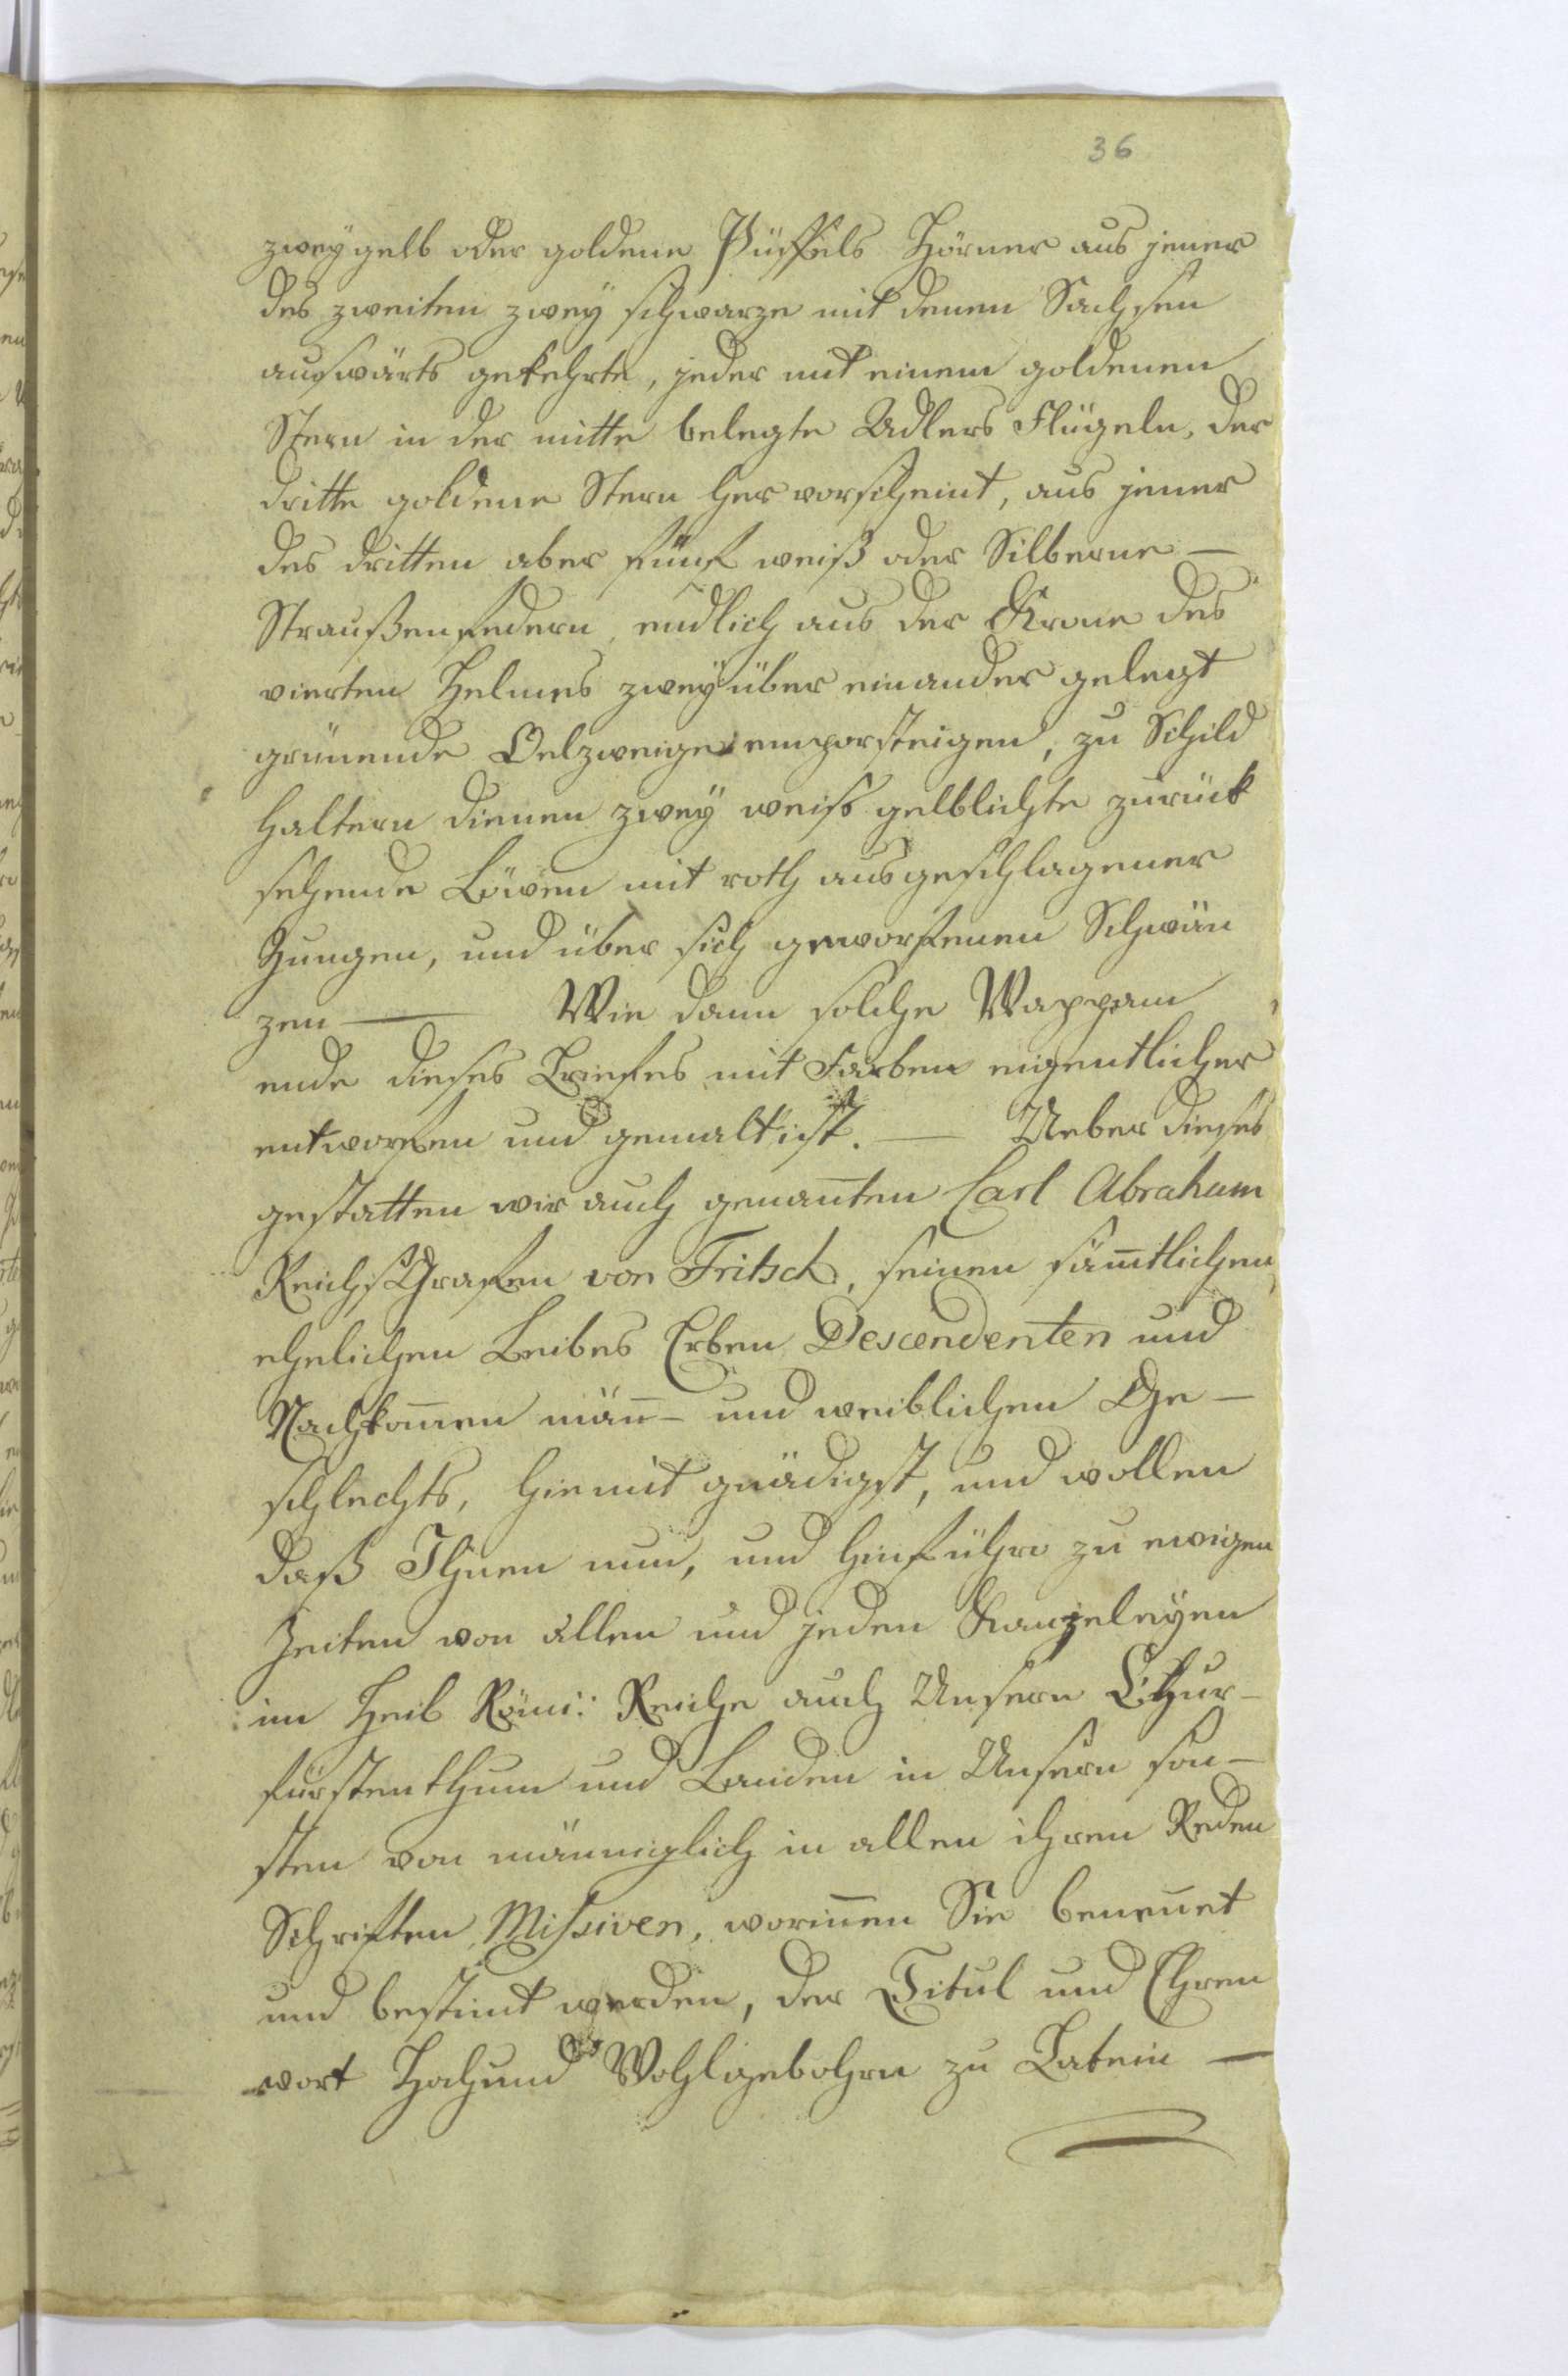 36
zwey gelb oder goldene Püffels Hörner aus jener
des zweiten zwey schwarze mit denen Sachsen
auswärts gekehrte, jeder mit einem goldenen
Stern in der mitte belegte Adlers Flügeln, der
dritte goldene Stern hervorscheint, aus jener
des dritten aber fünf weiß oder Silberne –
Straußenfedern, endlich aus der Krone des
vierten Helmes zwey über einander gelegt
grünende Oelzweige emporsteigen, zu Schild
haltern dienen zwey weiß gelblichte zurück
sehende Löwen mit roth ausgeschlagener
Zungen, und über sich geworfenen Schwän
zen — Wie dann solche Wappen
ende dieses Briefes mit Farben eigentlicher
entworfen und gemalt ist. — Ueber dieses
gestatten wir auch genan̄ten Carl Abraham
Reichs Grafen von Fritsch, seinen säm̄tlichen
ehelichen Leibes Erben Descendenten und
Nachkom̄en män̄– und weiblichen Ge–
schlechts, hiemit gnädigst, und wollen
daß Ihnen nun, und hinführo zu ewigen
Zeiten von allen und jeden Kanzeleyen
im Heil Römi: Reiche auch Unsern Chur–
fürstenthum und Landen in Unsern son–
sten von männiglich in allen ihren Reden
Schriften Missiven, worin̄en Sie benen̄et
und bestim̄t werden, der Titul und Ehren
wort Hochund Wohlgebohrn zu Latein —